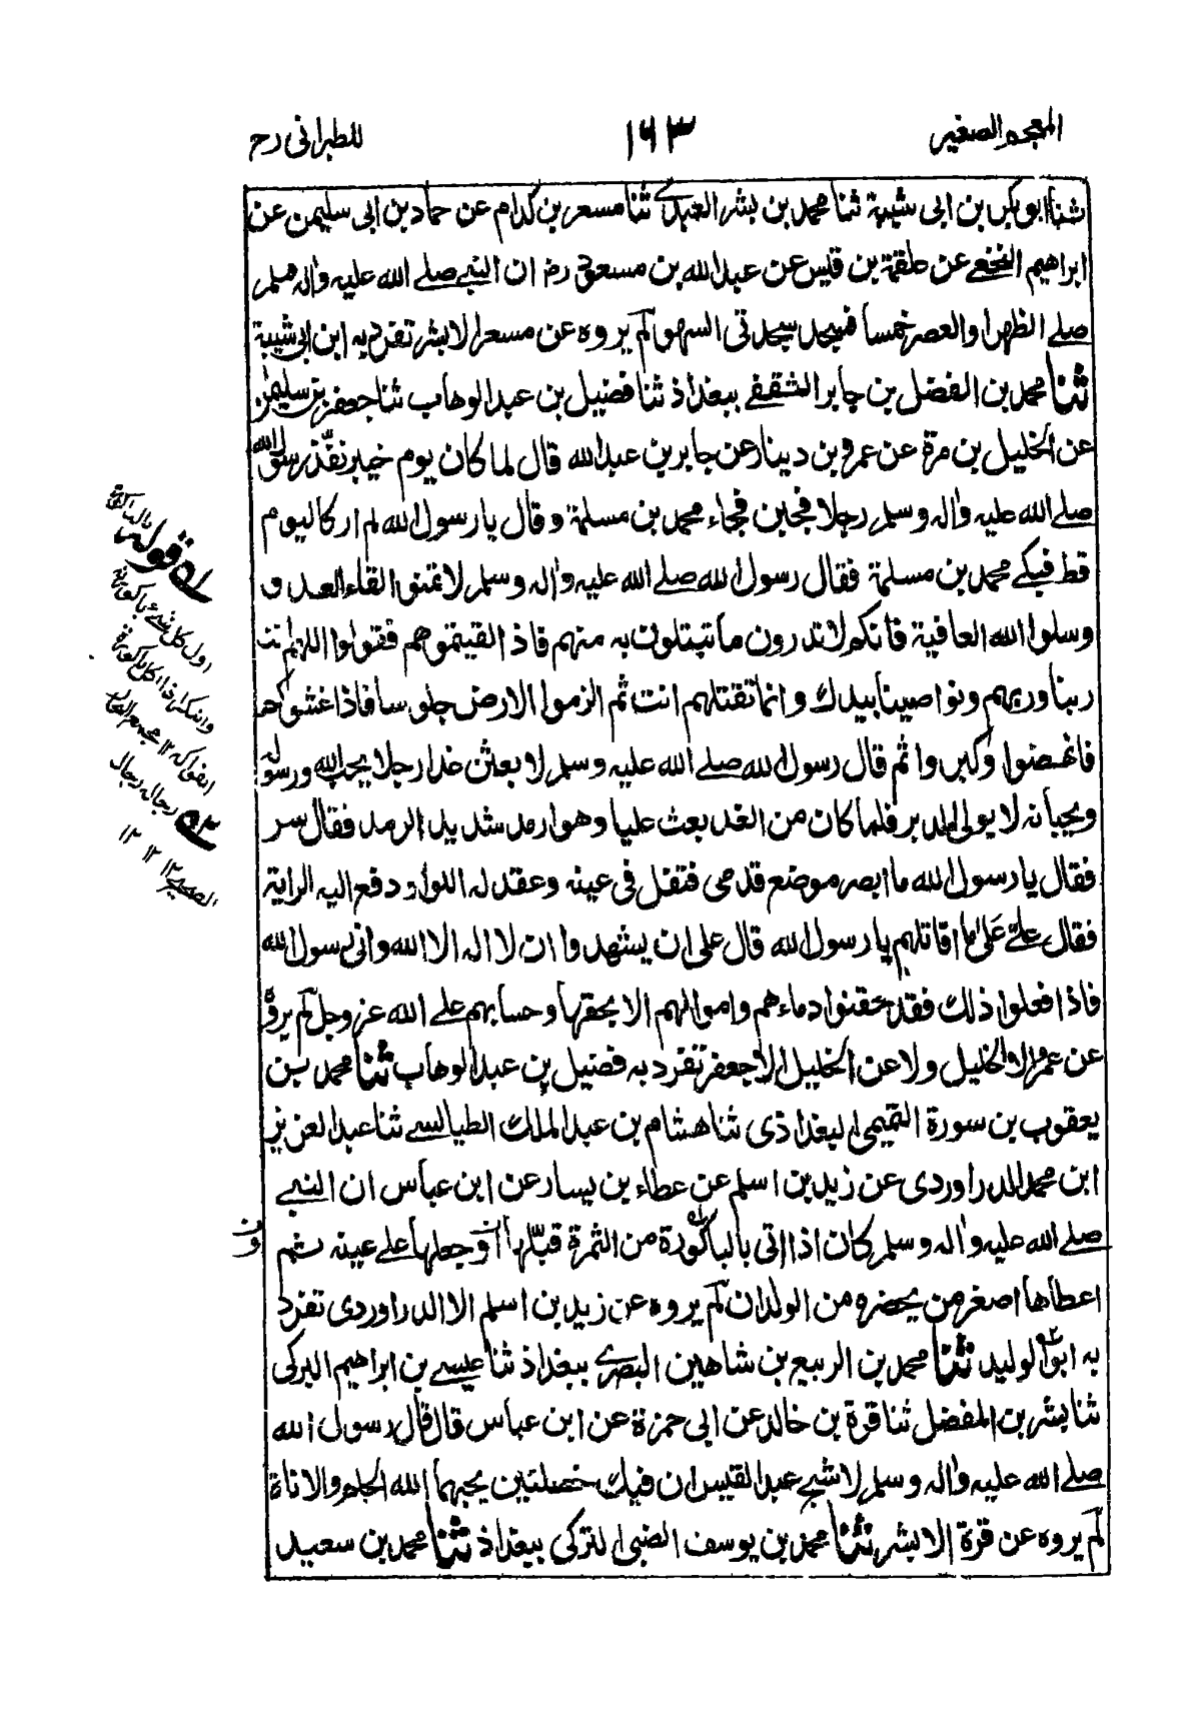 المعجم الصغير
١٦٣
للطبرانی رح
ثنا ابو بكر بن ابی شيبة ثنا محمد بن بشر العبدی ثنا مسعر بن كدام عن حماد بن ابی سليمن عن
ابراهيم النخعے عن علقمة بن قيس عن عبد الله بن مسعود رض ان النبے صلے الله عليه واٰله وسلم
صلے الظهر او العصر خمسا فسجد سجدتی السهو لم يروه عن مسعر الا بشر تفرد به ابن ابی شيبة
ثنا محمد بن الفضل بن جابر الثقفے ببغداذ ثنا فضيل بن عبد الوهاب ثنا جعفر بن سليمٰن
عن الخليل بن مرة عن عمرو بن دينار عن جابر بن عبد الله قال لما كان يوم خيبر نفّذ رسول الله
صلے الله عليه واٰله وسلم رجلا فجبن فجاء محمد بن مسلمة وقال يا رسول الله لم ار كاليوم
قط فبكے محمد بن مسلمة فقال رسول الله صلے الله عليه واٰله وسلم لا تمنوا لقاء العدو
وسلوا الله العافية فانكم لا تدرون ما تبتلون به منهم فاذا لقيتموهم فقولوا اللهم انت
ربنا وربهم ونواصينا بيدك وانما تقتلهم انت ثم الزموا الارض جلوسا فاذا غشوكم
فانهضوا وكبروا ثم قال رسول الله صلے الله عليه وسلم لابعثن غدا رجلا يحب الله ورسوله
ويحبانه لا يولی الدبر فلما كان من الغد بعث عليا وهو ارمد شديد الرمد فقال سر
فقال يا رسول الله ما ابصر موضع قدمی فتفل فی عينه وعقد له اللواء ودفع اليه الراية
فقال علیّ عَلیٰ ما اقاتلهم يا رسول الله قال علی ان يشهدوا ان لا اله الا الله وانی رسول الله
فاذا فعلوا ذلك فقد حقنوا دماءهم واموالهم الا بحقها وحسابهم علے الله عز وجل لم يروه
عن عمرو الا الخليل ولا عن الخليل الا جعفر تفرد به فضيل بن عبد الوهاب ثنا محمد بن
يعقوب بن سورة التميمی البغداذی ثنا هشام بن عبد الملك الطيالسے ثنا عبد العزيز
ابن محمد الدراوردی عن زيد بن اسلم عن عطاء بن يسار عن ابن عباس ان النبے
صلے الله عليه واٰله وسلم كان اذا اتی بالباكورة من الثمرة قبّلها او جعلها علے عينه ثم
اعطاها اصغر من يحضره من الولدان لم يروه عن زيد بن اسلم الا الدراوردی تفرد
به ابو الوليد ثنا محمد بن الربيع بن شاهين البصرے ببغداذ ثنا عيسے بن ابراهيم البركی
ثنا بشر بن المفضل ثنا قرة بن خالد عن ابی حمزة عن ابن عباس قال قال رسول الله
صلے الله عليه واٰله وسلم لاشج عبد القيس ان فيك خصلتين يحبهما الله الحلم والاناة
لم يروه عن قرة الا بشر ثنا محمد بن يوسف الضبی التركی ببغداذ ثنا محمد بن سعيد
قوله بالباكورة
اول كل شے باكورته
رجاله رجال
الصحيح ١٢ ١٢ ١٢